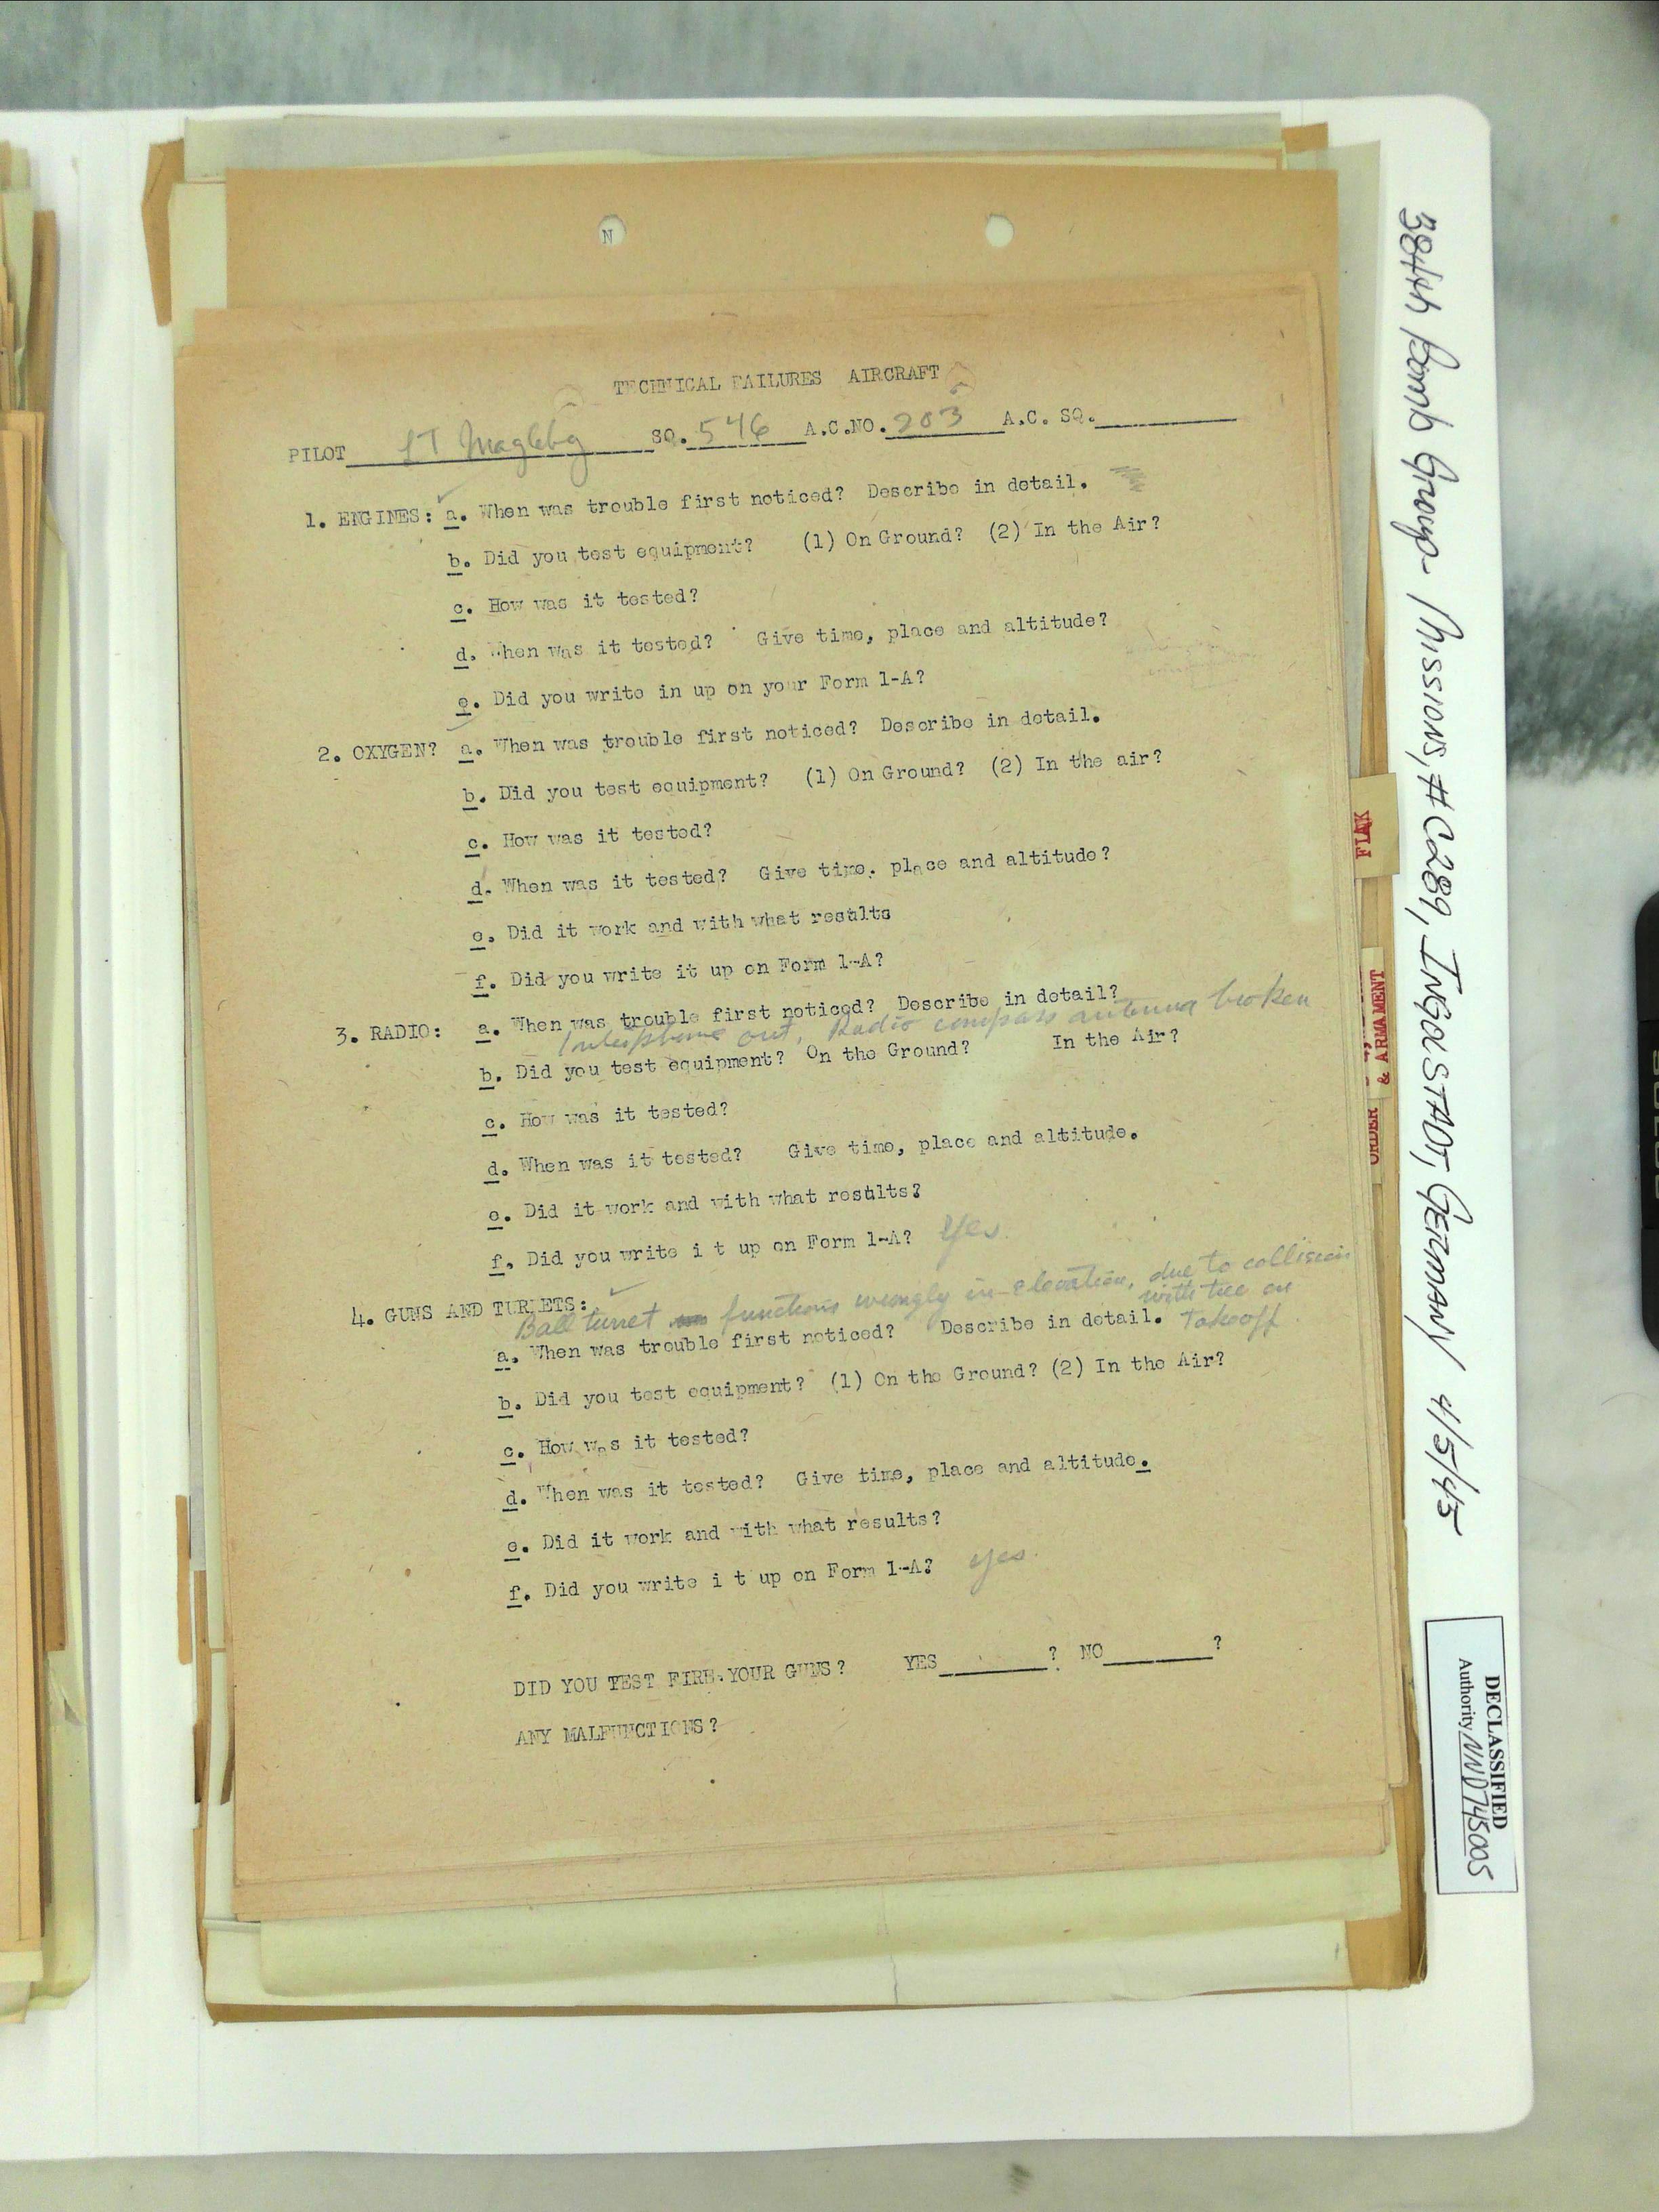 N
TECHNICAL FAILURES AIRCRAFT
PILOT LT Magleby SQ. 546 A.C.NO. 203 A.C. SQ.
1. ENGINES: a. When was trouble first noticed? Describe in detail.
b. Did you test equipment? (1) On Ground? (2) In the Air?
c. How was it tested?
d. When was it tested? Give time, place and altitude?
e. Did you write in up on your Form 1-A?
2. OXYGEN? a. When was trouble first noticed? Describe in detail.
b. Did you test equipment? (1) On Ground? (2) In the air?
c. How was it tested?
d. When was it tested? Give time. place and altitude?
e. Did it work and with what results
f. Did you write it up on Form 1-A?
3. RADIO: a. When was trouble first noticed? Describe in detail?
Interphone out, Radio compass antenna broken
b. Did you test equipment? On the Ground? In the Air?
c. How was it tested?
d. When was it tested? Give time, place and altitude.
e. Did it work and with what results?
f. Did you write i t up on Form 1-A? Yes.
4. GUNS AND TURRETS:
Ball turret functions wrongly in elevation, due to collision
with tree on
a. When was trouble first noticed? Describe in detail. Takeoff
b. Did you test equipment? (1) On the Ground? (2) In the Air?
c. How was it tested?
d. When was it tested? Give time, place and altitude.
e. Did it work and with what results?
f. Did you write i t up on Form 1-A? yes.
DID YOU TEST FIRE YOUR GUNS? YES ? NO ?
ANY MALFUNCTIONS?
FLAK
& ARMAMENT
ORDER
384th Bomb Group- Missions, # C289, INGOLSTADT, GERMANY 4/5/45
DECLASSIFIED
Authority NND745005